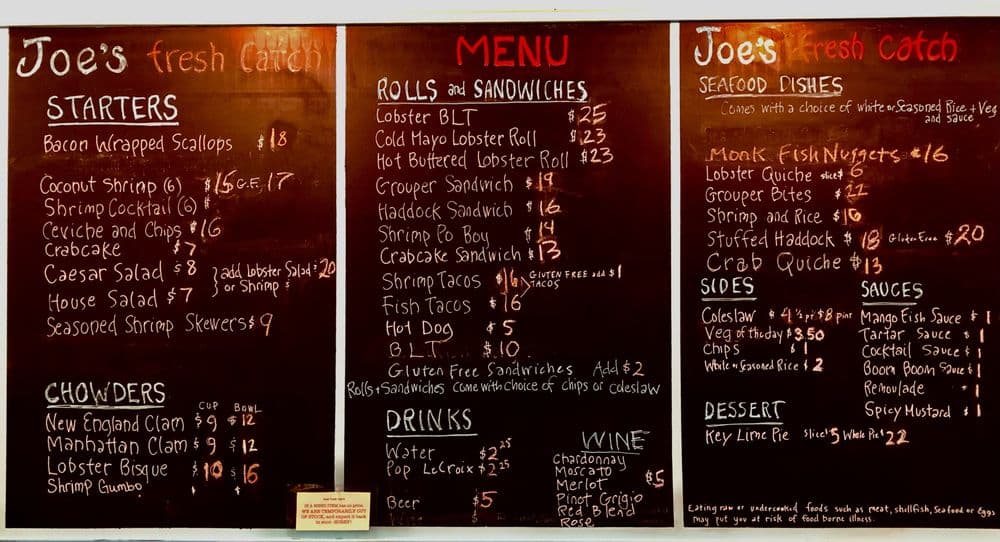 Joe's fresh catch
STARTERS
Bacon Wrapped Scallops $18
Coconut Shrimp (6) $15 G.F. 17
Shrimp Cocktail (6) $
Ceviche and Chips $16
Crabcake $7
Caesar Salad $8
House Salad $7
} add Lobster Salad $20
or Shrimp $
Seasoned Shrimp Skewers $9
CHOWDERS
CUP BOWL
New England Clam $9 $12
Manhattan Clam $9 $12
Lobster Bisque $10 $16
Shrimp Gumbo $ $
MENU
ROLLS and SANDWICHES
Lobster BLT $25
Cold Mayo Lobster Roll $23
Hot Buttered Lobster Roll $23
Grouper Sandwich $19
Haddock Sandwich $16
Shrimp Po Boy $14
Crabcake Sandwich $13
Shrimp Tacos $16
Fish Tacos $16
GLUTEN FREE add $1
TACOS
Hot Dog $5
BLT $10
Gluten Free Sandwiches Add $2
Rolls + Sandwiches Come with choice of chips or coleslaw
DRINKS
Water $2 25
Pop LeCroix $2 25
Beer $5
WINE
Chardonnay
Moscato
Merlot $5
Pinot Grigio
Red Blend
Rose
IF A MENU ITEM has no price,
WE ARE TEMPORARILY OUT
OF STOCK, and expect it back
Joe's fresh catch
SEAFOOD DISHES
Comes with a choice of white or Seasoned Rice + Veg
and sauce
Monk Fish Nuggets $16
Lobster Quiche slice $ 6
Grouper Bites $
Shrimp and Rice $16
Stuffed Haddock $18 Gluten Free $20
Crab Quiche $13
SIDES
Coleslaw $4 ½ pt $8 pint
Veg of the day $3.50
Chips $1
White or Seasoned Rice $2
SAUCES
Mango Fish Sauce $1
Tartar Sauce $1
Cocktail Sauce $1
Boom Boom Sauce $1
Remoulade 1
Spicy Mustard $1
DESSERT
Key Lime Pie Slice $5 Whole Pie $22
Eating raw or undercooked foods such as meat, shellfish, Seafood or Eggs
may put you at risk of food borne illness.